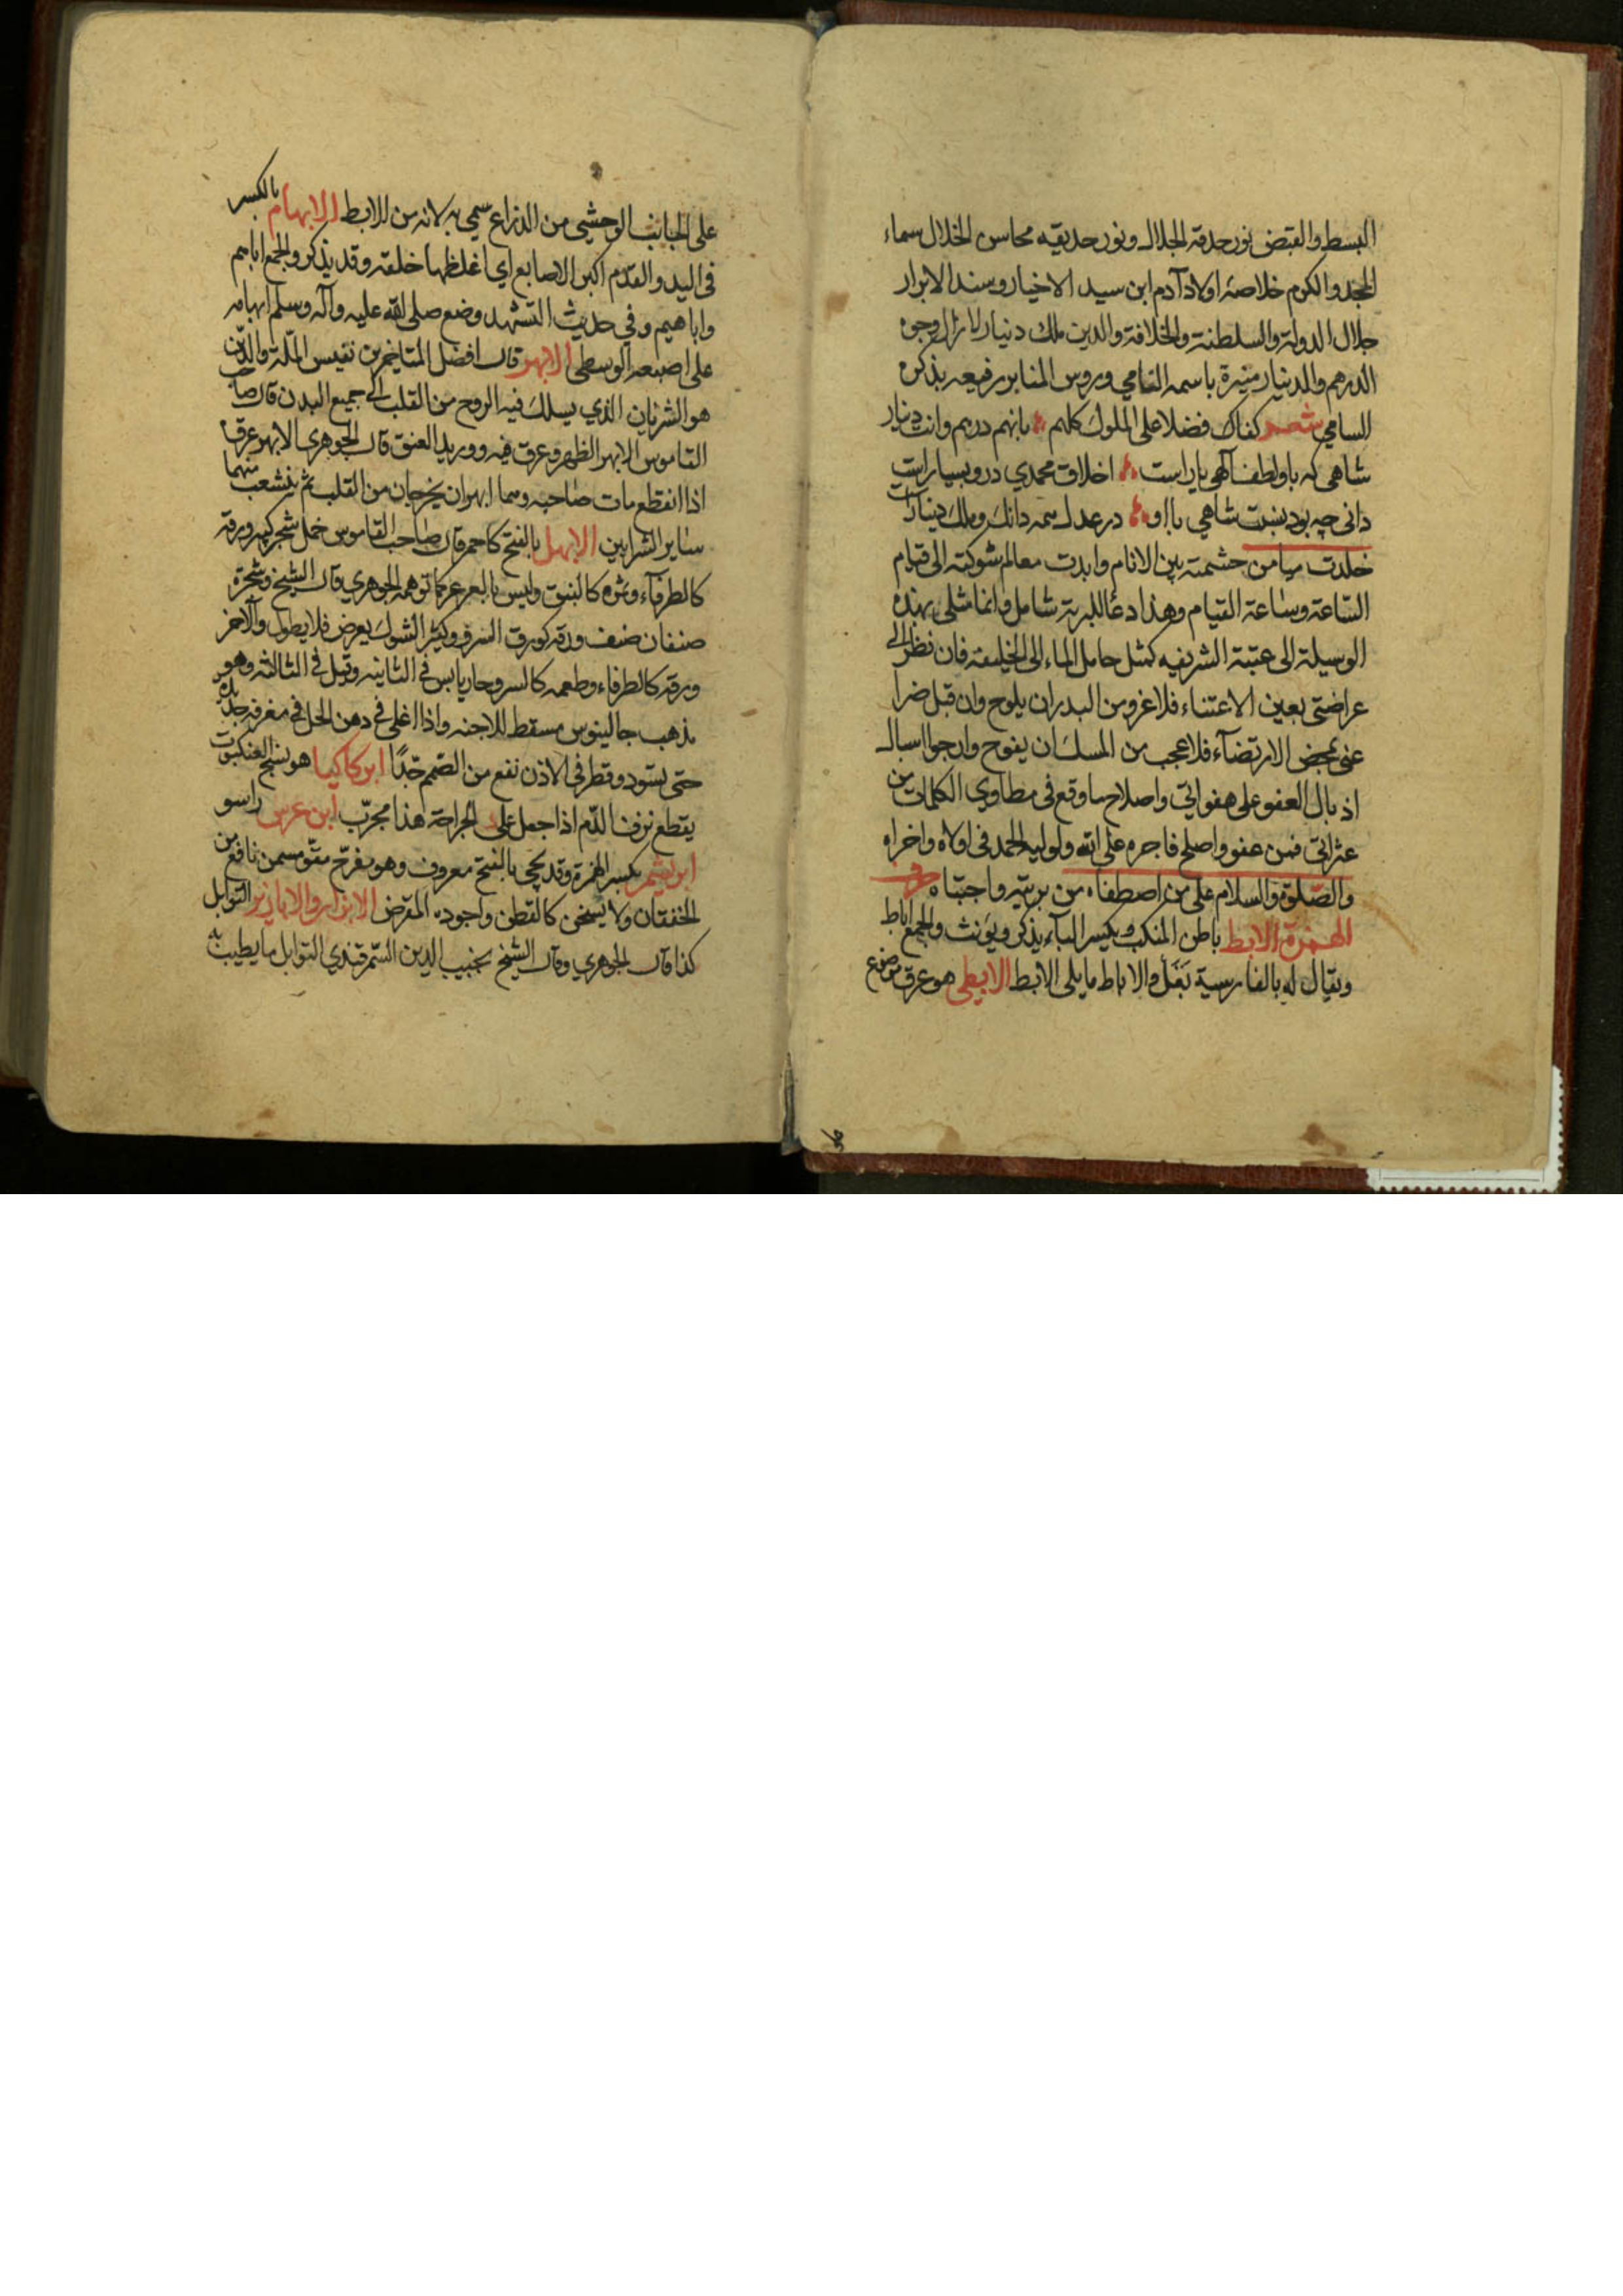 البسط والقبض نور حدقة الجلال ونور حديقه محاسن الخلال سماء
المجد والكرم خلاصة اولاد آدم ابن سيد الاخيار وسند الابرار
جلال الدولة والسلطنة والخلافة والدين ملك دينار لا زال وجوه
الدرهم والدينار منيرة باسمه السامي وروس المنابر رفيعه بذكره
السامي شعر كفاك فضلا على الملوك كلهم بانهم درهم وانت دينار
شاهی که باو لطف آلهی یار است اخلاق محمدي درو بسیار است
دانی چه بود نسبت شاهي با او در عدل همه دانك وملك دینار است
خلدت ميامن حشمته بين الانام وابدت معالم شوكته الى قيام
الساعة وساعة القيام وهذا دعا للبرية شامل وانما مثلي بهذه
الوسيلة الى عتبة الشريفه كمثل حامل الماء الى الخليفة فان نظر الى
عراضتي بعين الاعتناء فلا غرو من البدر ان يلوح وان قبل ضرا
عتي بمحض الارتضآء فلا عجب من المسك ان يفوح وارجوا اسبال
اذيال العفو على هفواتي واصلاح ما وقع فى مطاوي الكلمات من
عثراتي فمن عفو واصلح فاجره على الله ولوليه الحمد فى اولاه واخراه
والصلوة والسلام على من اصطفاه من بريته واجتباه
الهمزة الابط باطن المنكب وبكسر البآء يذكر ويؤنث والجمع اباط
ويقال له بالفارسية بَغَل والاباط ما يلى الابط الابطي هو عرق موضوع
على الجانب الوحشي من الذراع سمي به لانه من الابط الابهام بالكسر
فى اليد والقدم اكبر الاصابع اي اغلظها خلقة وقد يذكر والجمع اباهم
واباهيم وفي حديث التشهد وضع صلى الله عليه وآله وسلم ابهامه
على اصبعه الوسطى الابهر قال افضل المتاخرين نفيس الملة والدين
هو الشريان الذي يسلك فيه الروح من القلب الى جميع البدن قال صاحب
القاموس الابهر الظهر وعرق فيه ووريد العنق قال الجوهرى الابهر عرق
اذا انقطع مات صاحبه وهما ابهران يخرجان من القلب ثم يتشعب منهما
ساير الشرايين الابهل بالفتح كاحمر قال صاحب القاموس حمل شجر كبير ورقه
كالطرفآء وثمره كالنبق وليس بالعرعر كما توهمه الجوهري قال الشيخ وشجرة
صنفان صنف ورقه كورق السرو وكثير الشوك يعرض فلا يطول والآخر
ورقه كالطرفاء وطعمه كالسرو حار يابس فى الثانيه وقيل فى الثالثه وهو
بذهب جالينوس مسقط للاجنه واذا اغلى فى دهن الحل في مغرفه حديد
حتى يسود وقطر فى الاذن نفع من الصمم جدًا ابركاكيا هو نسج العنكبوت
يقطع نزف الدم اذا جعل على الجراحة هذا مجرّب ابن عرس راسو
ابريشم بكسر الهمزة وقد يجي بالفتح معروف وهو مفرح مقو مسمن نافع من
الخفقان ولا يسخن كالقطن واجوده المقرض الابزار والابازير التوابل
كذا قال الجوهري وقال الشيخ نجيب الدين السمرقندي التوابل ما يطيب به